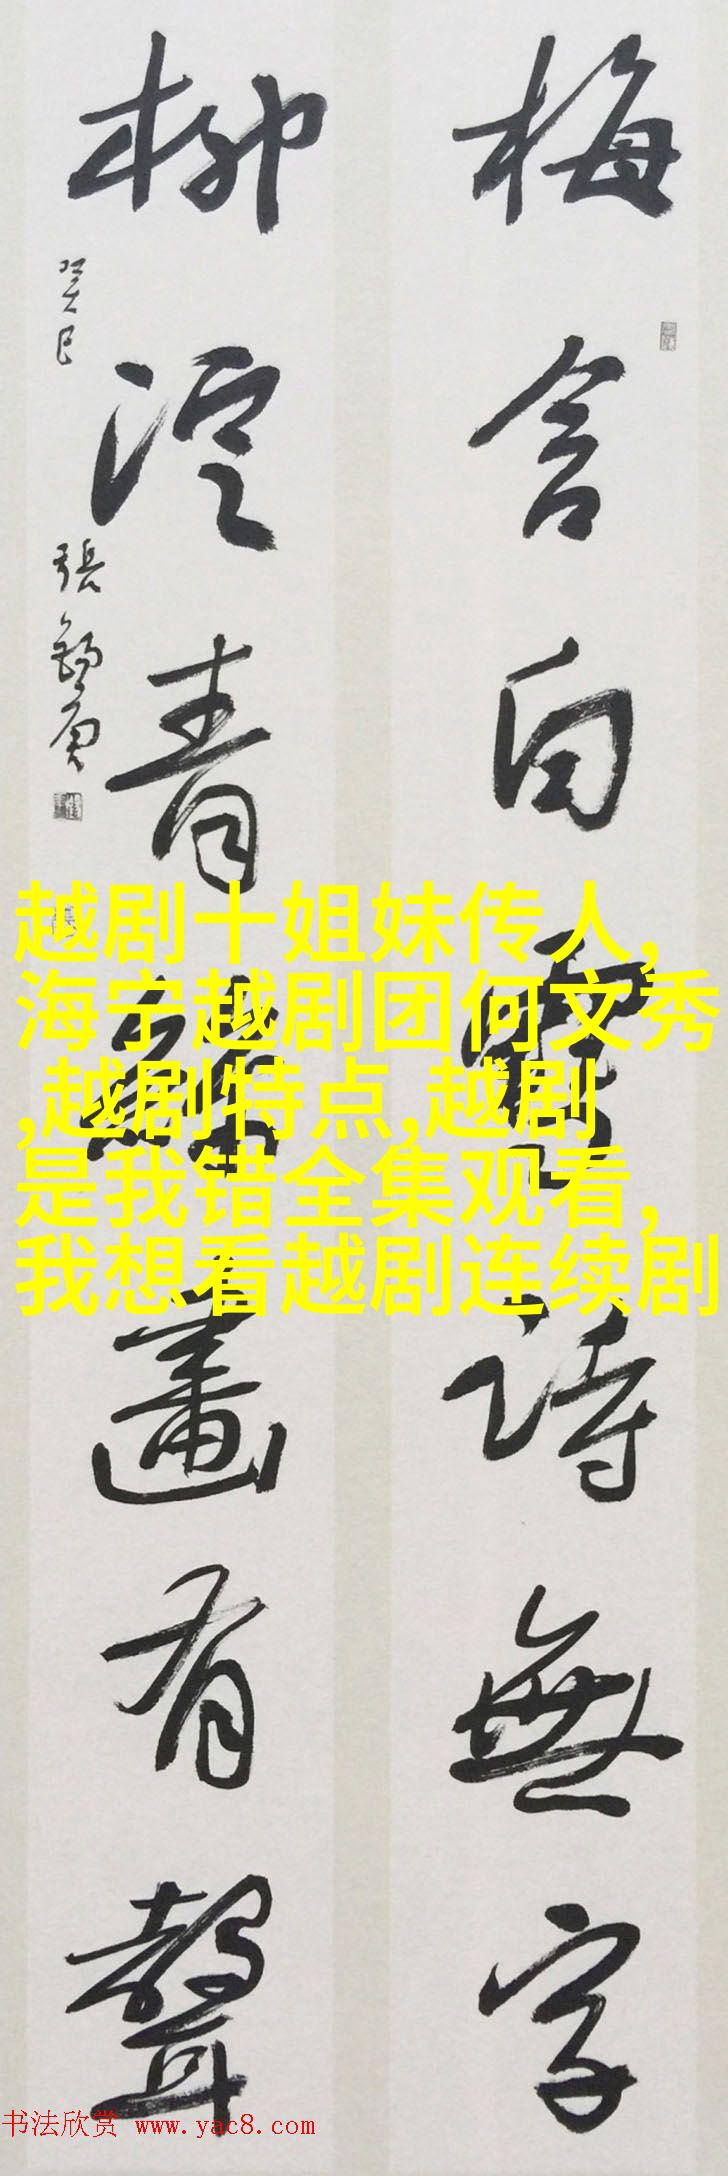 梅含白雪詩無字
柳浥青絲畫有聲
癸巳
張
越剧十姐妹传人,
海宁越剧团何文秀
,越剧特点,越剧
是我错全集观看,
我想看越剧连续剧
书法欣赏 www.yac8.com